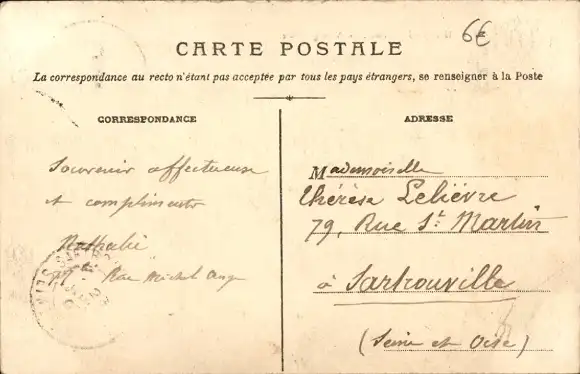 6€
CARTE POSTALE
La correspondance au recto n'étant pas acceptée par tous les pays étrangers, se renseigner à la Poste
CORRESPONDANCE
Souvenir affectueux
et compliments
Nathalie
Rue Michel Ange
ADRESSE
Mademoiselle
Thérèse Lelièvre
79, Rue St Martin
à Sartrouville
(Seine et Oise)